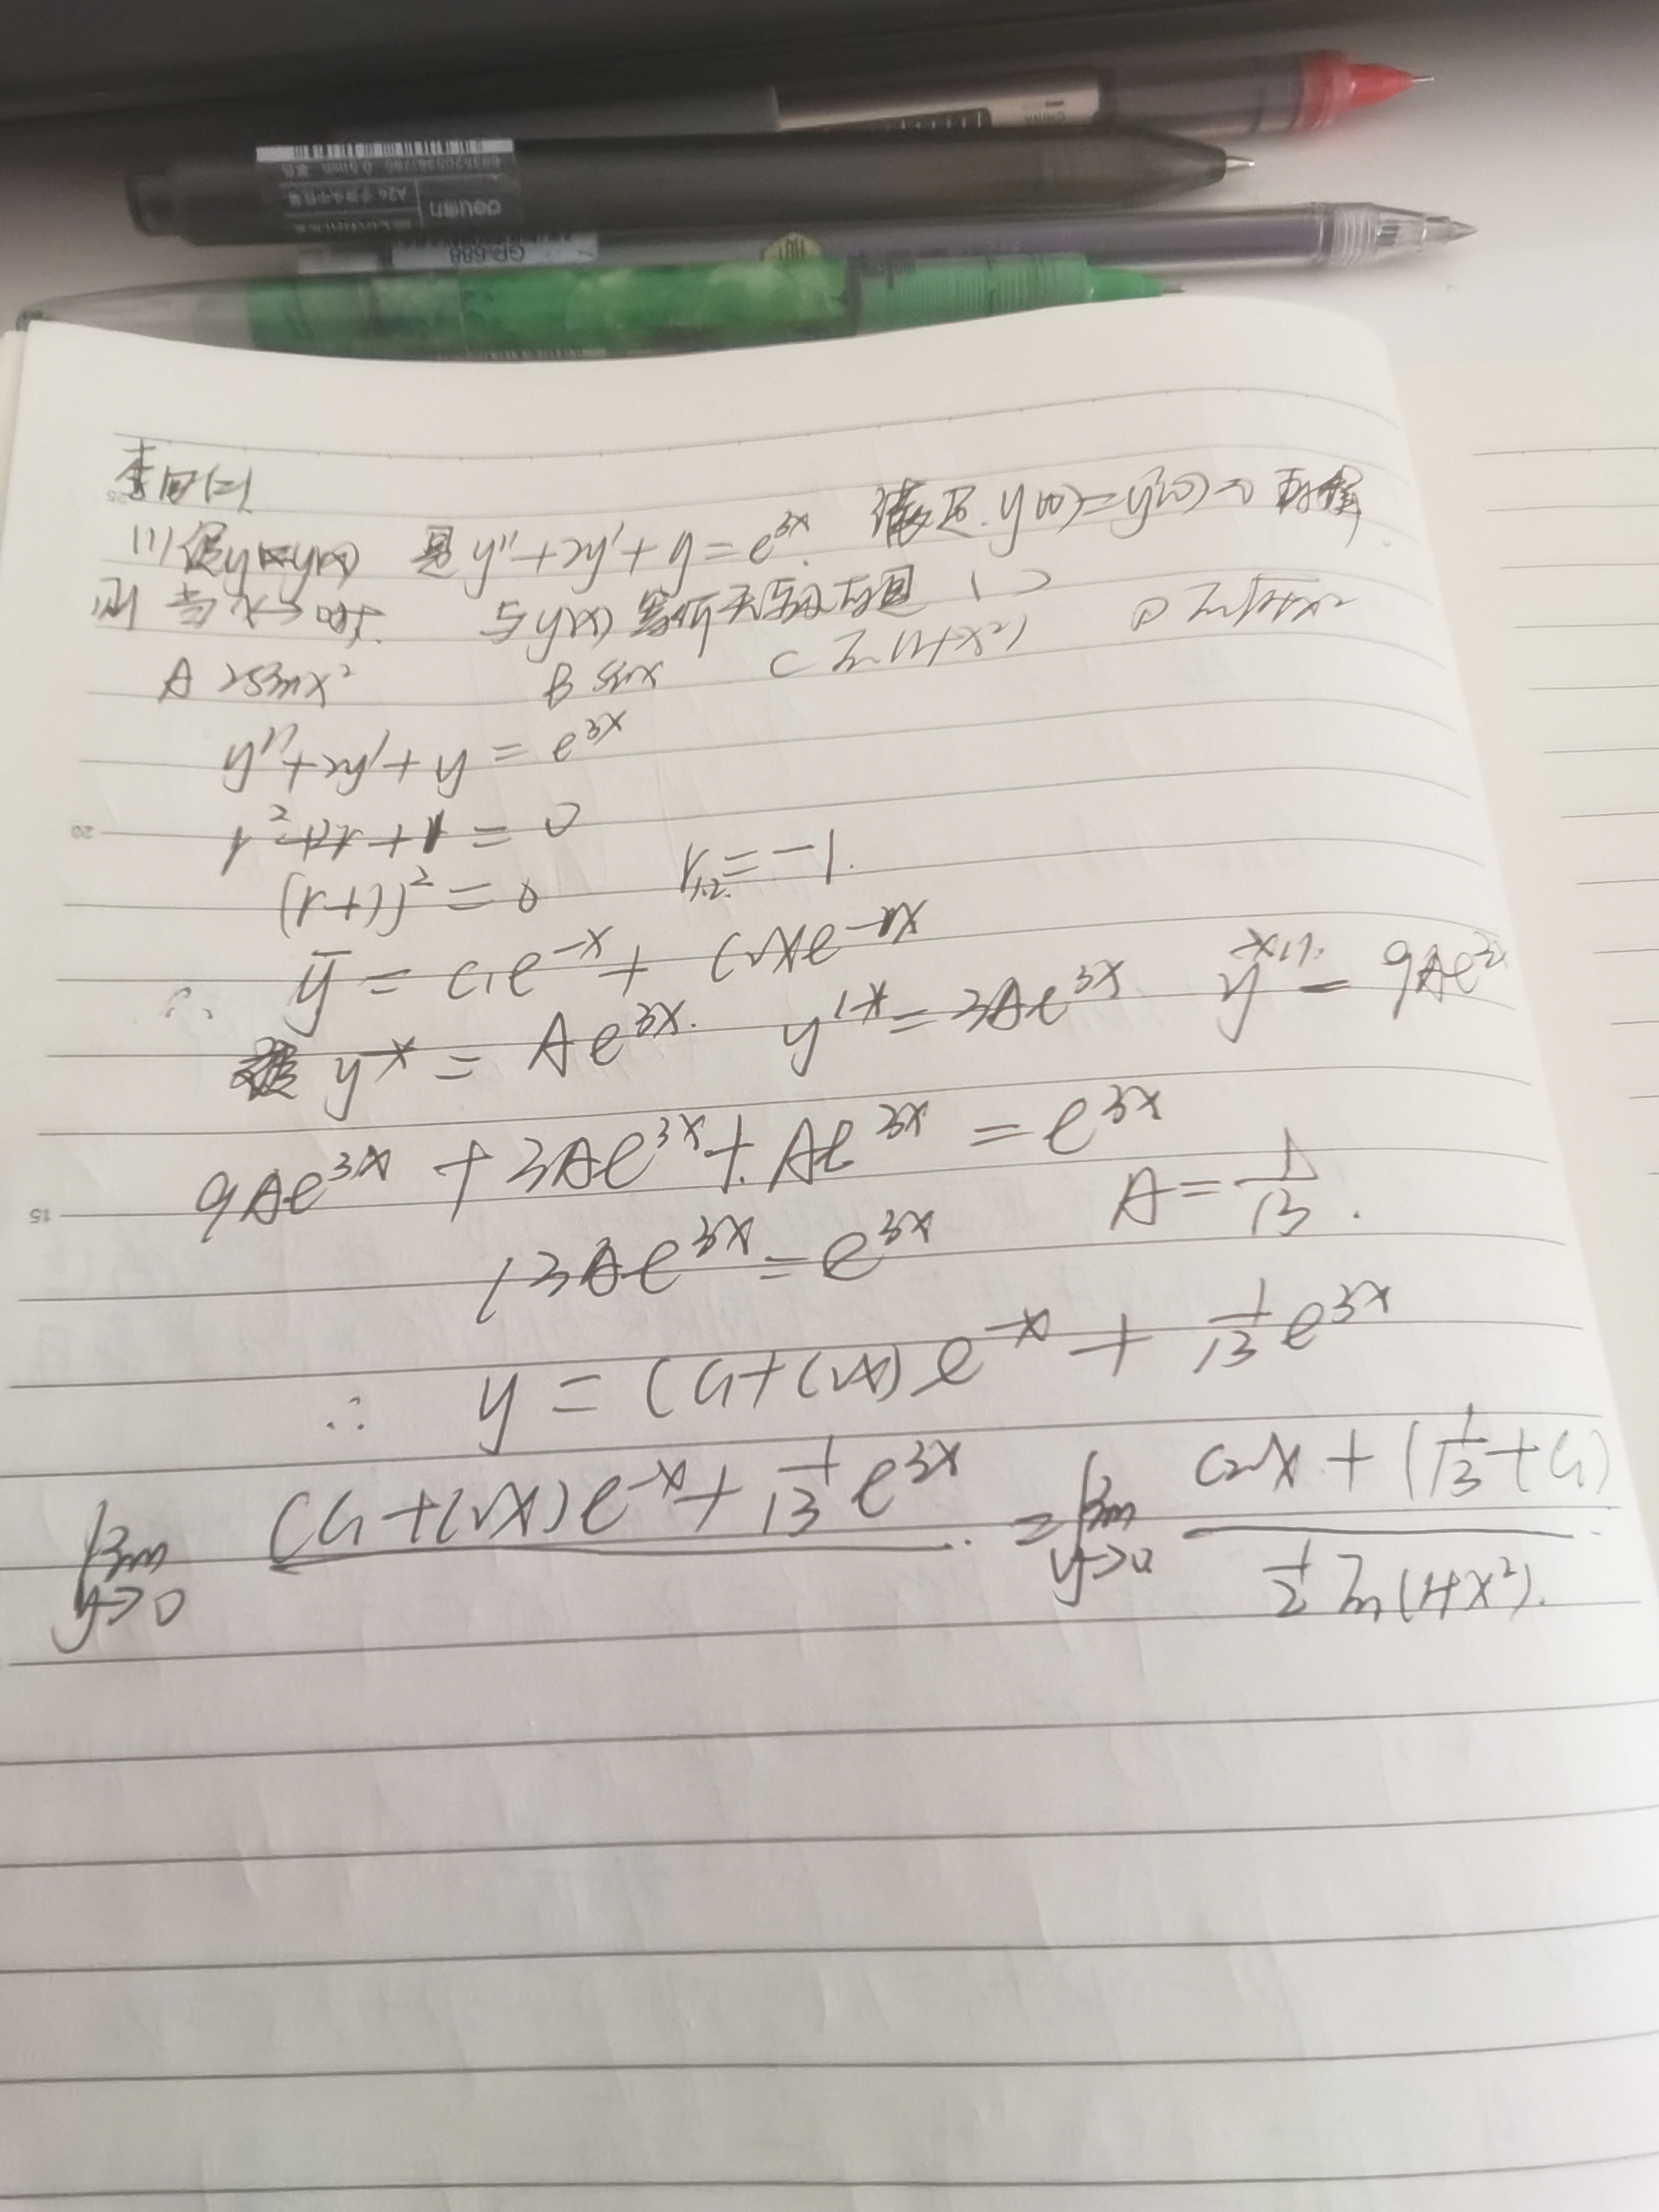 李四(二)
(1) 设y=y(x) 是 y''+2y'+y=e^{3x} 满足 y(0)=y'(0)=0 的解
则 当 x→0时, 与y(x) 等价无穷小的是 ( )
A 2sinx² B sinx C ln(1+x²) D ln√1+x²
y''+2y'+y = e^{3x}
r²+2r+1 = 0
(r+1)² = 0 r₁,₂ = -1.
∴ ȳ = c₁e^{-x} + c₂xe^{-x}
设 y* = Ae^{3x}. y'* = 3Ae^{3x} y*'' = 9Ae^{3x}
9Ae^{3x} + 3Ae^{3x} + Ae^{3x} = e^{3x}
13Ae^{3x} = e^{3x} A = 1/13.
∴ y = (c₁+c₂x)e^{-x} + 1/13 e^{3x}
lim y→0 (c₁+c₂x)e^{-x} + 1/13 e^{3x} = lim y→0 c₂x + (1/13 + c₁) / 1/2 ln(1+x²).
GP-688
deli得力
A24
CHINA
20
15